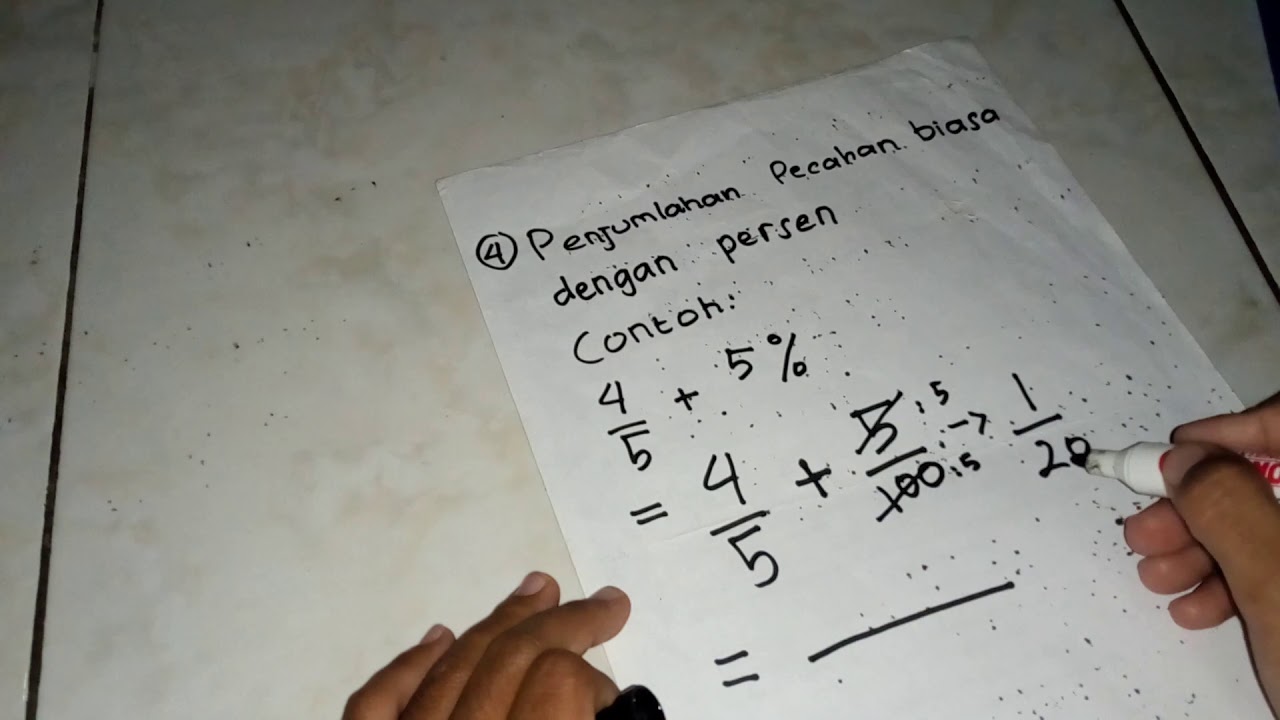 ④ Penjumlahan Pecahan biasa
dengan persen
Contoh:
4/5 + 5%
= 4/5 + 5:5/100:5 → 1/20
=